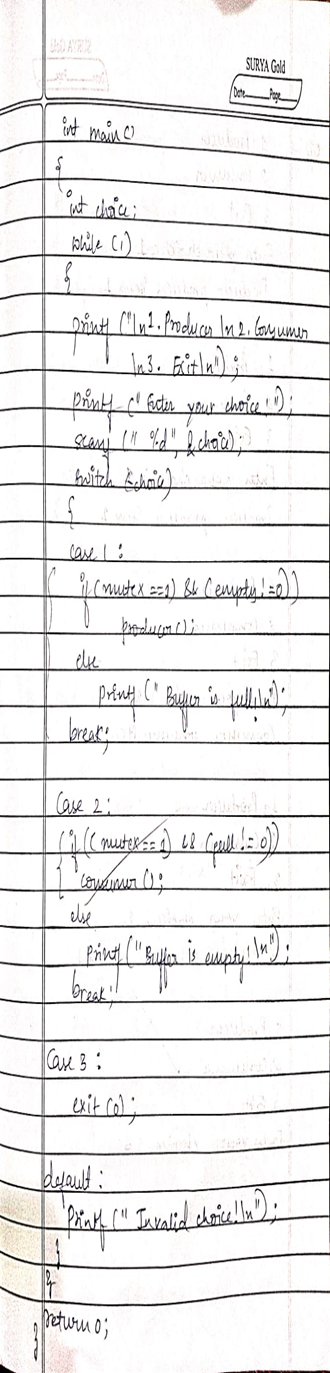 SURYA Gold
Date____Page____
int main()
{
int choice;
while (1)
{
printf ("\n1. Producer \n 2. Consumer
\n3. Exit\n");
printf ("Enter your choice: ");
scanf ("%d", &choice);
switch (choice)
{
case 1:
if (mutex ==1) && (empty!=0))
producer();
else
printf ("Buffer is full!\n");
break;
Case 2:
if ((mutex==1) && (full != 0))
consumer();
else
printf ("Buffer is empty!\n");
break;
Case 3:
exit (0);
default:
printf (" Invalid choice!\n");
}
}
return 0;
}